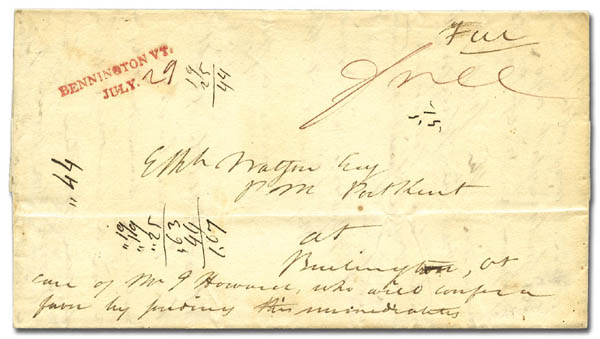 BENNINGTON VT.
JULY. 29
19
25
44
Free
Free
Watson Esq
P. M. Port Kent
at
Burlington, Vt
care of Mr J Howard, who will confer a
favor by sending this immediately
"44
"19
"19
"25
"63
44
1.07